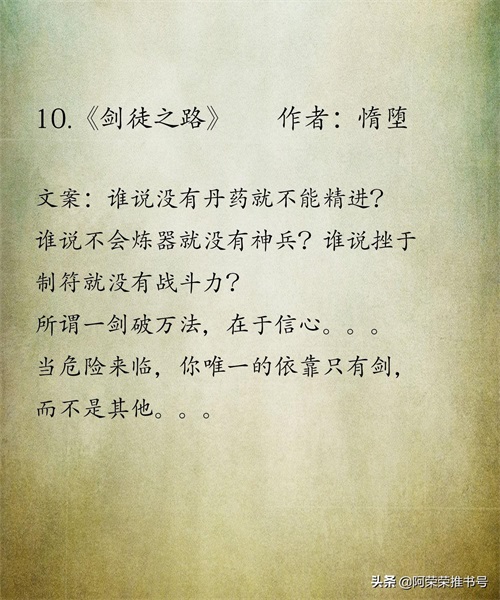 10.《剑徒之路》 作者：惰堕
文案：谁说没有丹药就不能精进？
谁说不会炼器就没有神兵？谁说拙于
制符就没有战斗力？
所谓一剑破万法，在于信心。。。
当危险来临，你唯一的依靠只有剑，
而不是其他。。。
头条 @阿荣荣推书号